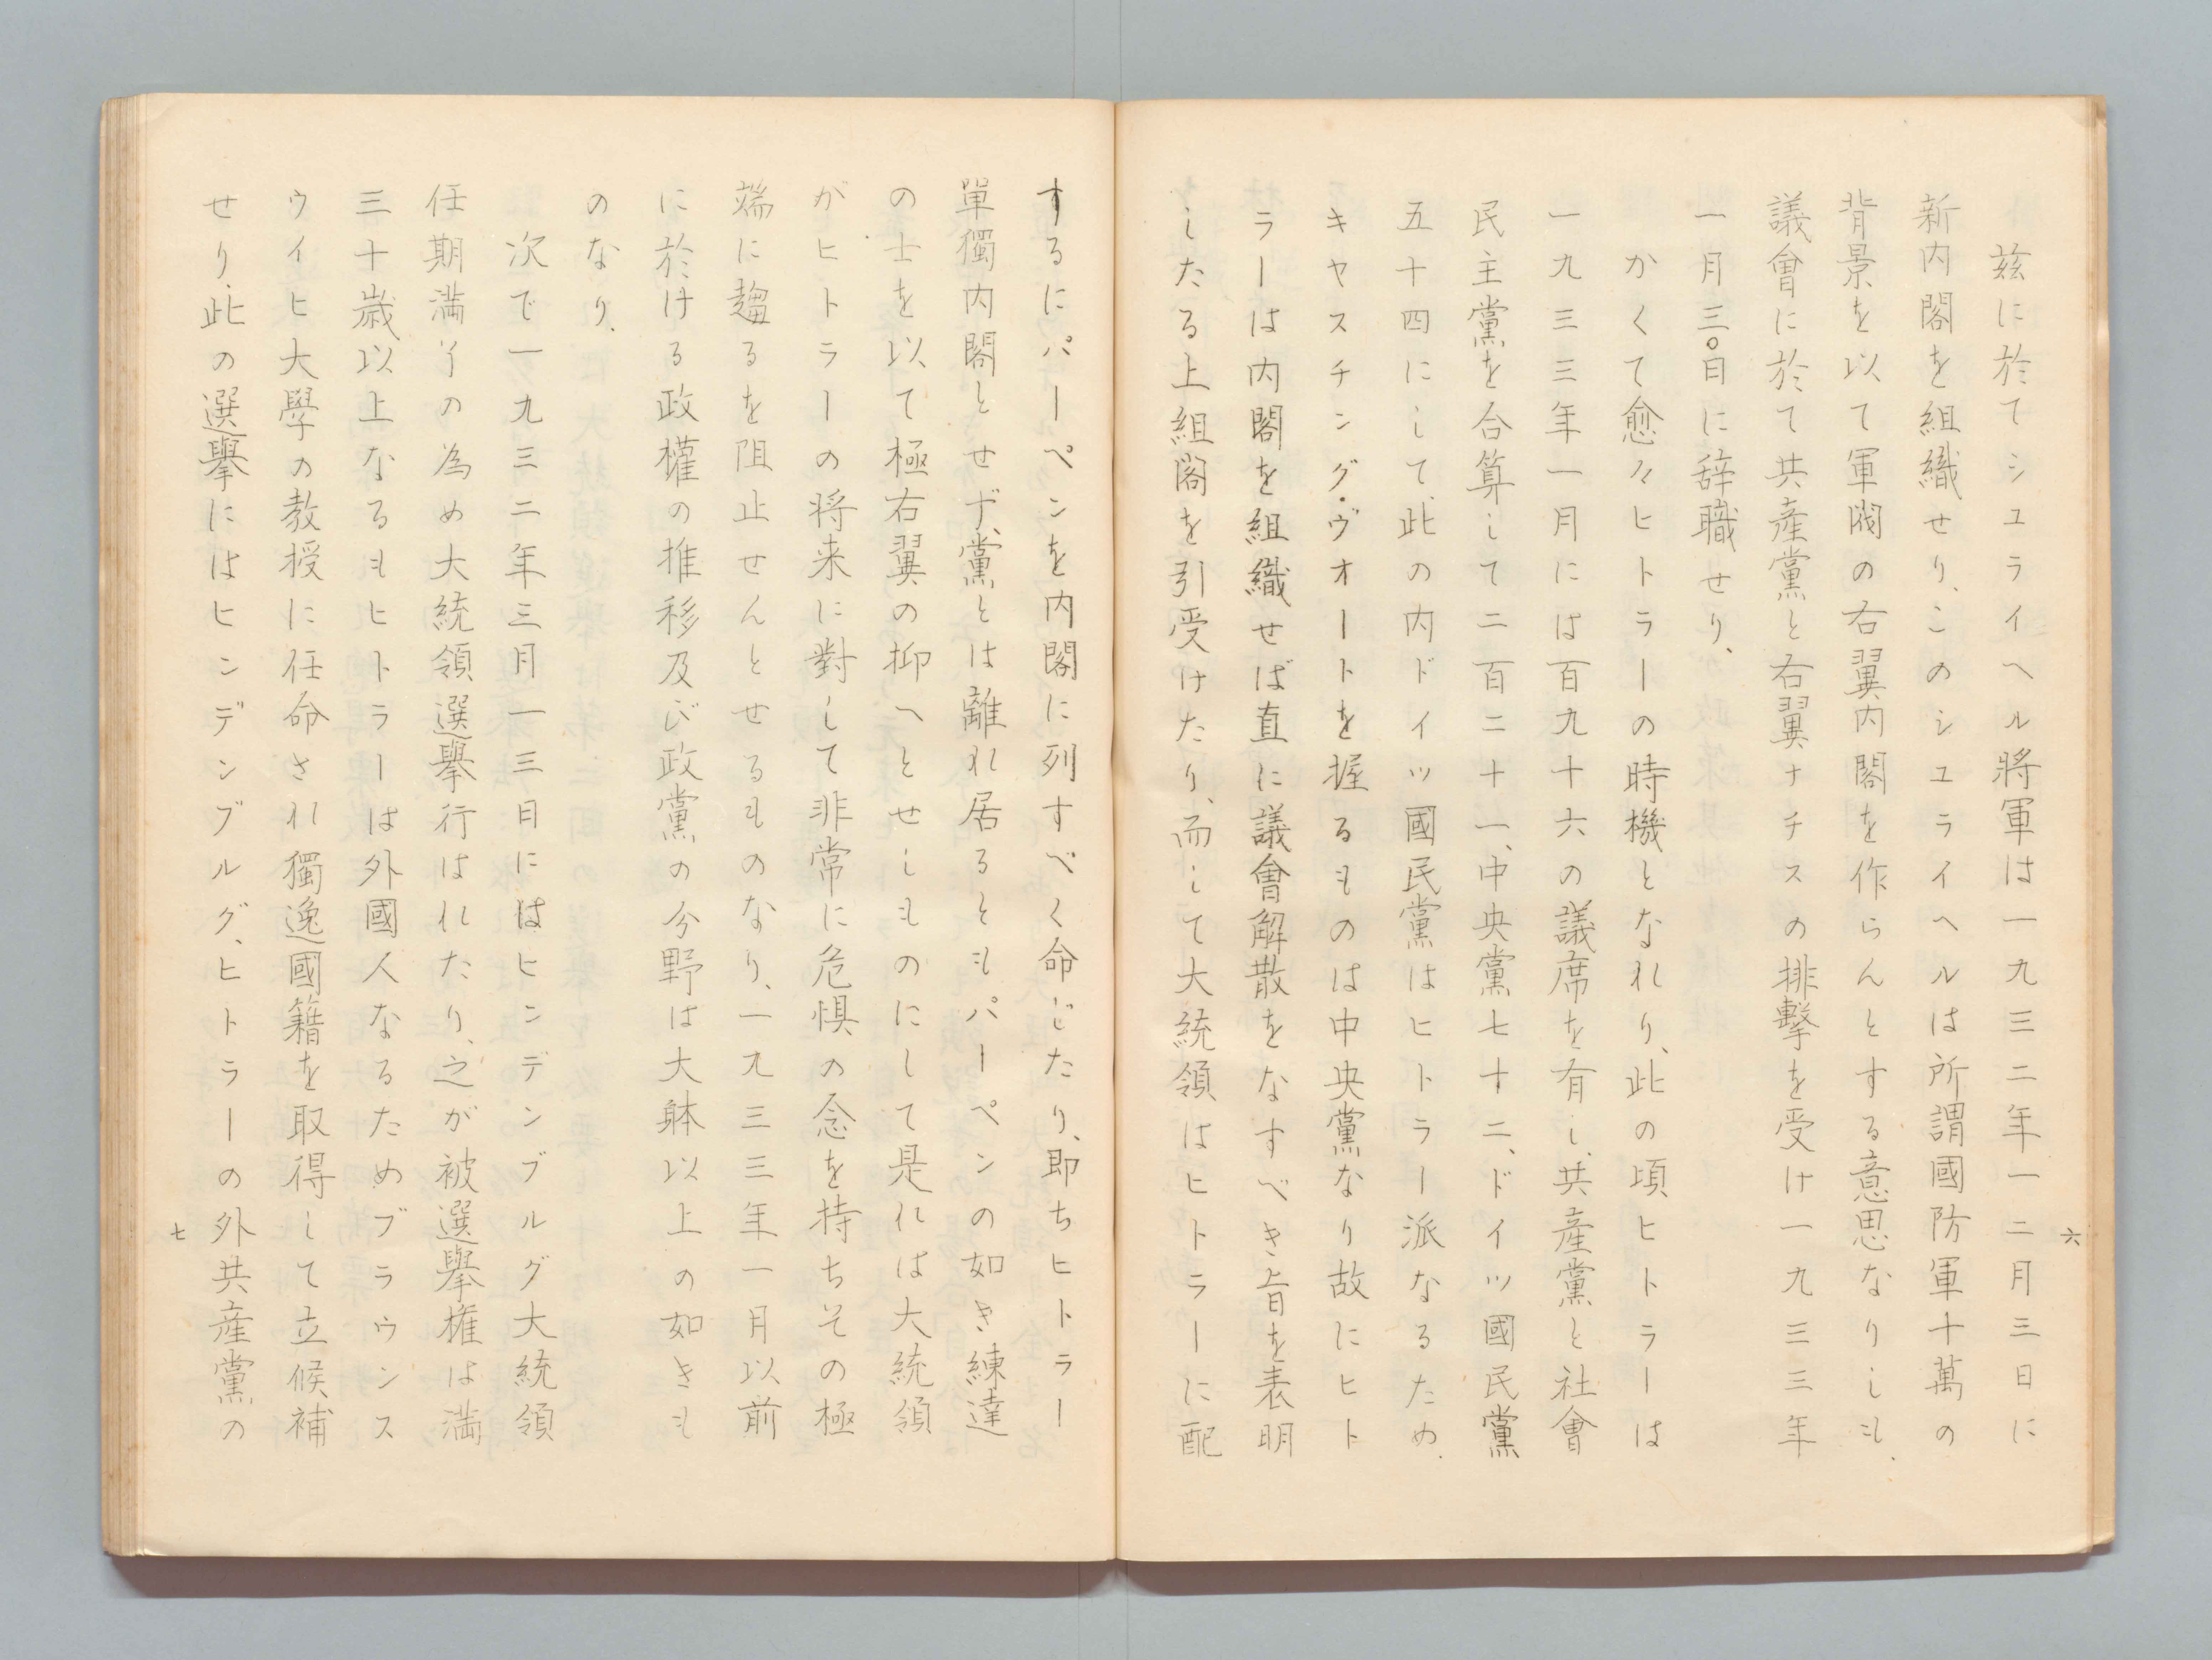 六
茲に於てシユライヘル將軍は一九三二年一二月三日に
新内閣を組織せり、このシユライヘルは所謂國防軍十萬の
背景を以て軍閥の右翼内閣を作らんとする意思なりしも、
議會に於て共産黨と右翼ナチスの排擊を受け一九三三年
一月三〇日に辞職せり、
かくて愈々ヒトラーの時機となれり、此の頃ヒトラーは
一九三三年一月には百九十六の議席を有し、共産黨と社會
民主黨を合算して二百二十一、中央黨七十二、ドイツ國民黨
五十四にして、此の内ドイツ國民黨はヒトラー派なるため、
キヤスチング・ヴオートを握るものは中央黨なり故にヒト
ラーは内閣を組織せば直に議會解散をなすべき旨を表明
したる上組閣を引受けたり、而して大統領はヒトラーに配
するにパーペンを内閣に列すべく命じたり、即ちヒトラー
單獨内閣とせず、黨とは離れ居るともパーペンの如き練達
の士を以て極右翼の抑へとせしものにして是れは大統領
がヒトラーの将来に對して非常に危惧の念を持ちその極
端に趨るを阻止せんとせるものなり、一九三三年一月以前
に於ける政權の推移及び政黨の分野は大躰以上の如きも
のなり、
次で一九三二年三月一三日にはヒンデンブルグ大統領
任期満了の為め大統領選擧行はれたり、之が被選擧権は満
三十歳以上なるもヒトラーは外國人なるためブラウンス
ウイヒ大學の教授に任命され獨逸國籍を取得して立候補
せり、此の選擧にはヒンデンブルグ、ヒトラーの外共産黨の
七